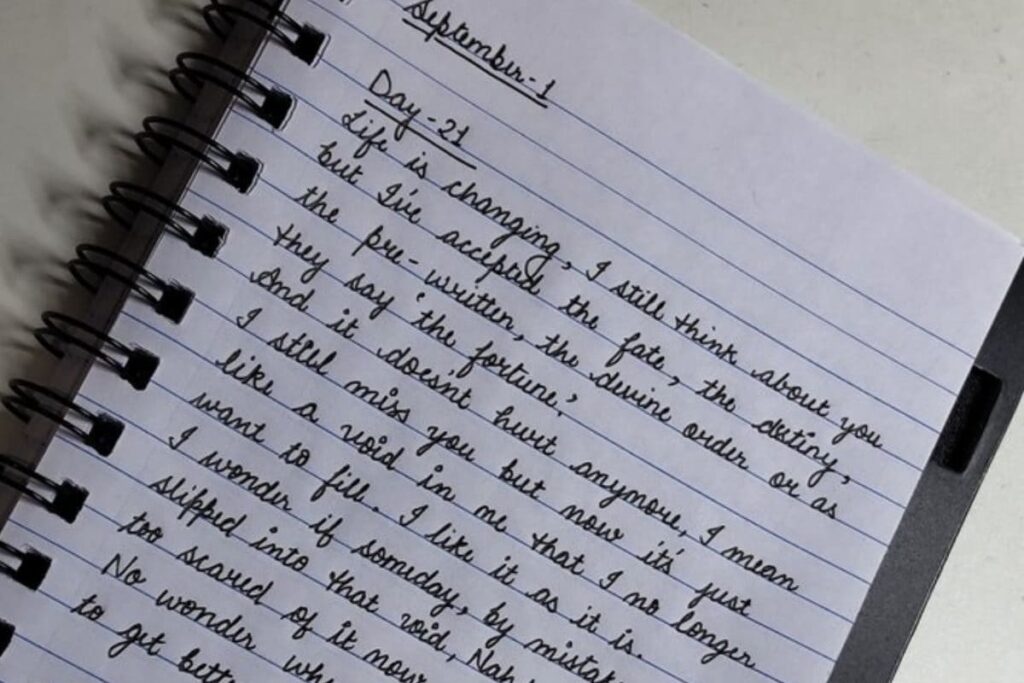 September-1
Day-21
Life is changing, I still think about you
but I've accepted the fate, the destiny,
the pre-written, the devine order or as
they say 'the fortune.'
And it doesnt hurt anymore, I mean
I still miss you but now it's just
like a void in me that I no longer
want to fill. I like it as it is.
I wonder if someday, by
slipped into that void, Nah
too scared of it now
No wonder
to get